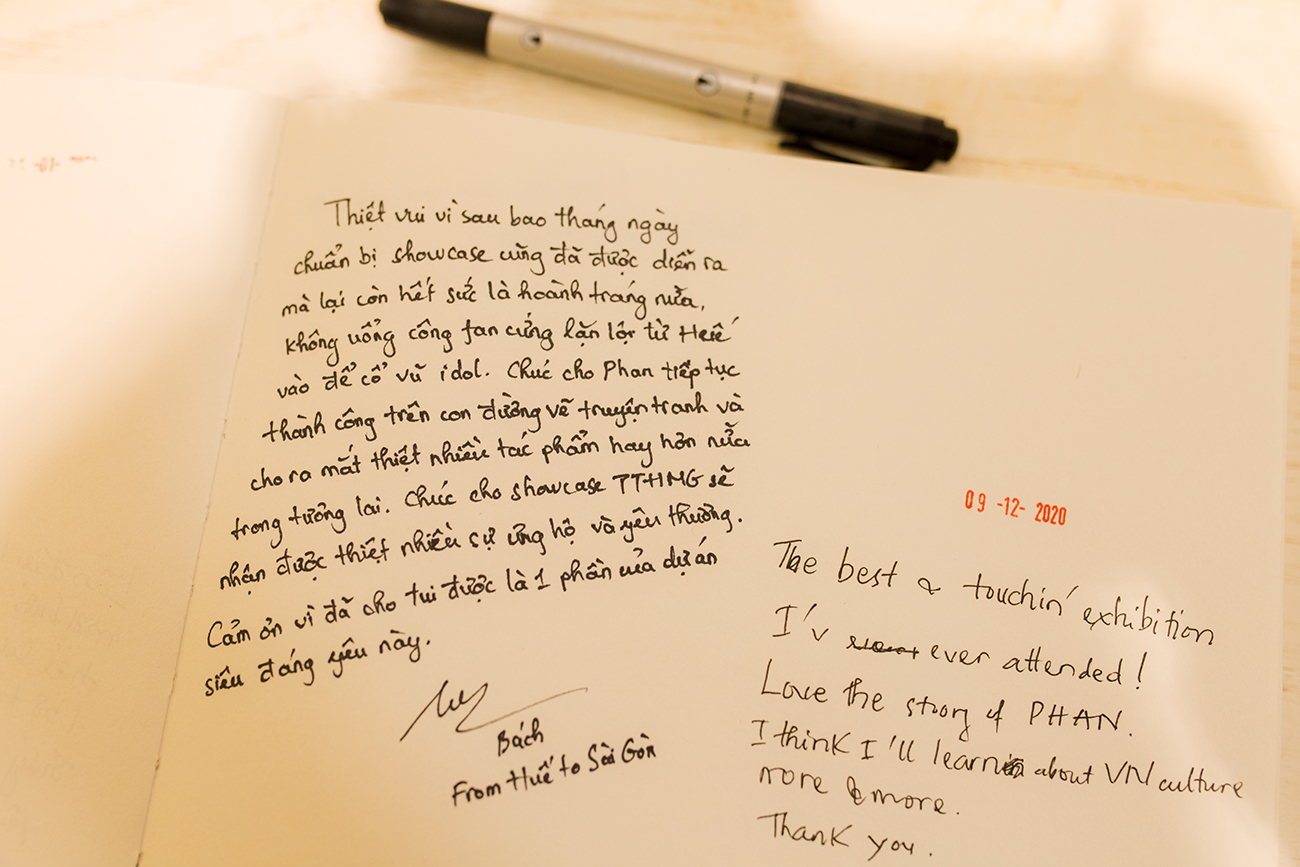 Thiệt vui vì sau bao tháng ngày
chuẩn bị showcase cũng đã được diễn ra
mà lại còn hết sức là hoành tráng nữa,
không uổng công fan cứng lặn lội từ Huế
vào để cổ vũ idol. Chúc cho Phan tiếp tục
thành công trên con đường vẽ truyện tranh và
cho ra mắt thiệt nhiều tác phẩm hay hơn nữa
trong tương lai. Chúc cho showcase TTHMG sẽ
nhận được thiệt nhiều sự ứng hộ và yêu thương.
Cảm ơn vì đã cho tui được là 1 phần của dự án
siêu đáng yêu này.
Bách
From Huế to Sài Gòn
09 -12- 2020
The best & touchin' exhibition
I'v ever attended!
Love the story of PHAN.
I think I'll learn about VN culture
more & more.
Thank you.